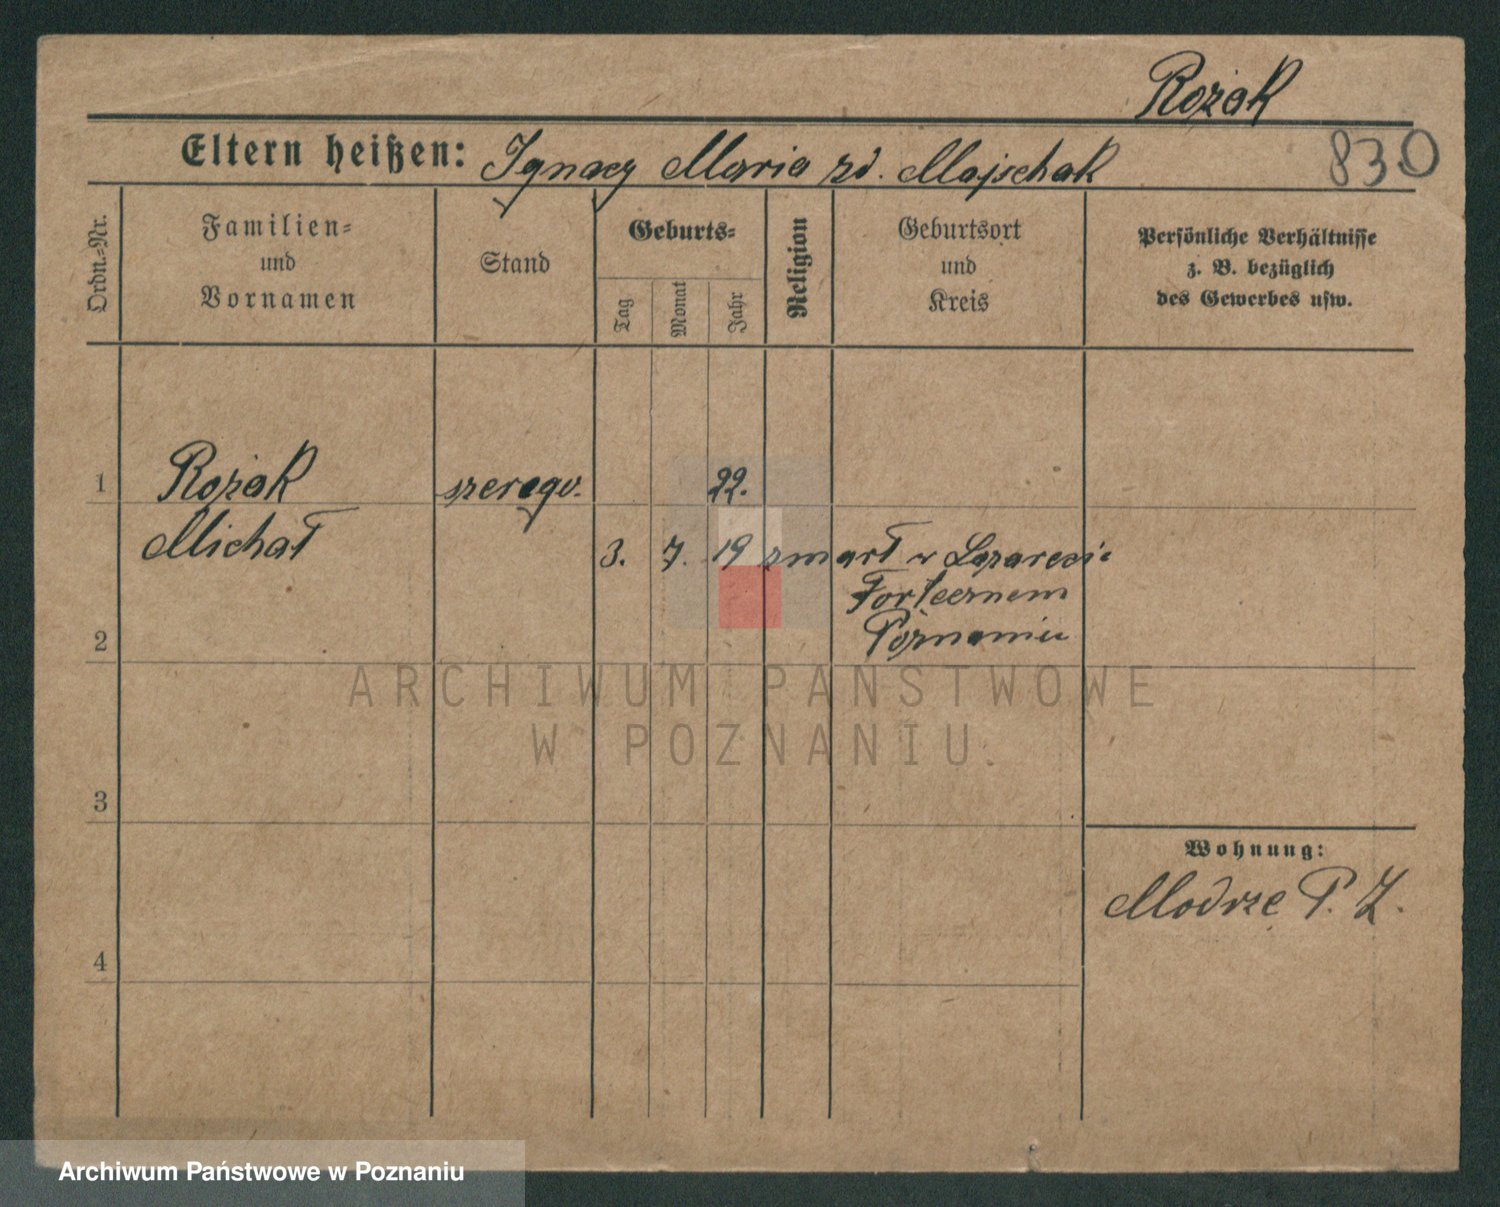 Rożak
Eltern heißen: Ignacy Maria zd. Majschak
830
Ordn.=Nr.
Familien=
und
Vornamen
Stand
Geburts=
Tag
Monat
Jahr
Religion
Geburtsort
und
Kreis
Persönliche Verhältnisse
z. B. bezüglich
des Gewerbes usw.
1 Rożak szeregw. 22.
Michał 3. 7. 19 zmarł w Lazarecie
Fortecznem
2 Poznaniu
ARCHIWUM PAŃSTWOWE
W POZNANIU.
3
Wohnung:
Modrze P. Z.
4
Archiwum Państwowe w Poznaniu